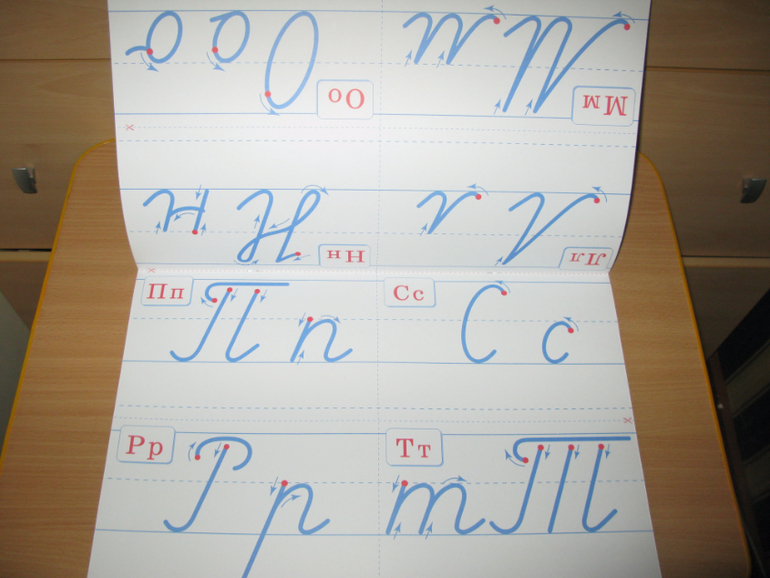 Лл Л л Нн Н н
Мм М м Оо О о о
Пп П п Сс С с
Рр Р р Тт т Т